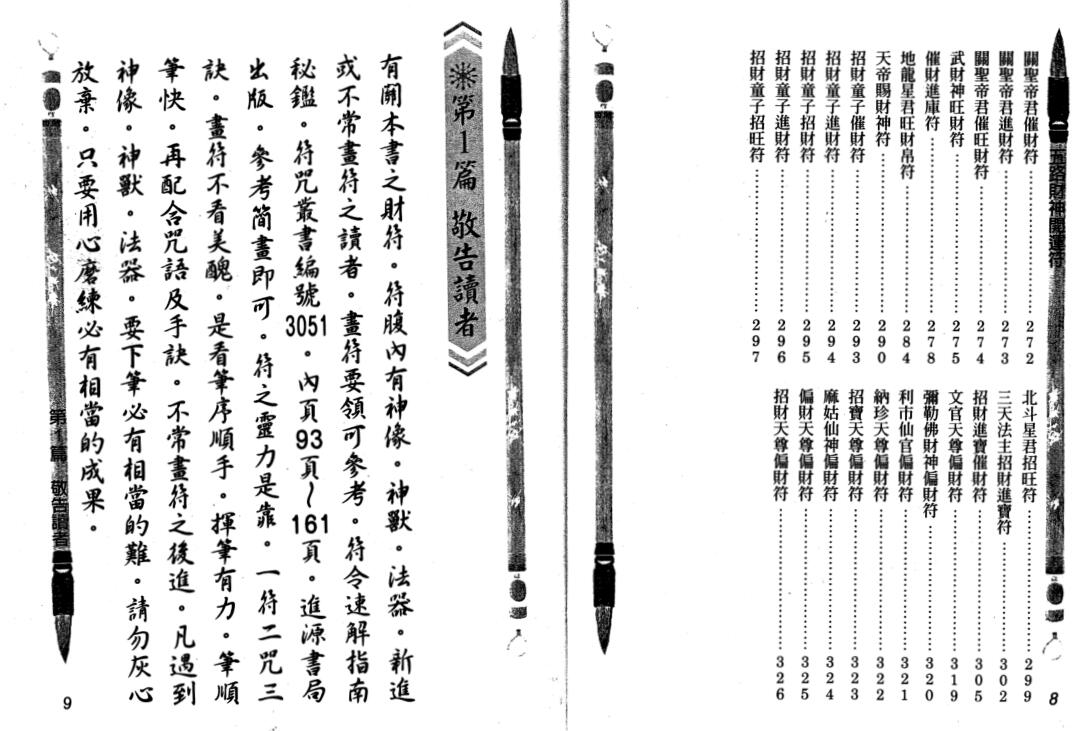 五路財神開運符
關聖帝君催財符………………272
關聖帝君進財符………………273
關聖帝君催旺財符………………274
武財神旺財符………………275
催財進庫符………………278
地龍星君旺財帛符………………284
天帝賜財神符………………290
招財童子催財符………………293
招財童子進財符………………294
招財童子招財符………………295
招財童子進財符………………296
招財童子招旺符………………297
北斗星君招旺符………………299
三天法主招財進寶符………………302
招財進寶催財符………………305
文官天尊偏財符………………319
彌勒佛財神偏財符………………320
利市仙官偏財符………………321
納珍天尊偏財符………………322
招寶天尊偏財符………………323
麻姑仙神偏財符………………324
偏財天尊偏財符………………325
招財天尊偏財符………………326
8
※第1篇 敬告讀者
有關本書之財符。符腹內有神像。神獸。法器。新進
或不常畫符之讀者。畫符要領可參考。符令速解指南
秘鑑。符咒叢書編號3051。內頁93頁~161頁。進源書局
出版。參考簡畫即可。符之靈力是靠。一符二咒三
訣。畫符不看美醜。是看筆序順手。揮筆有力。筆順
筆快。再配合咒語及手訣。不常畫符之後進。凡遇到
神像。神獸。法器。要下筆必有相當的難。請勿灰心
放棄。只要用心磨練必有相當的成果。
第1篇 敬告讀者
9